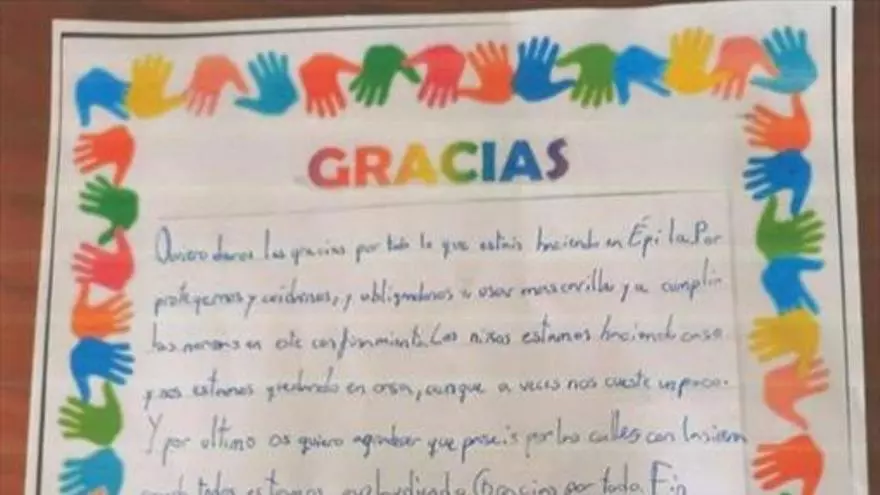 GRACIAS
Quiero daros las gracias por todo lo que estais haciendo en Épila. Por
protegernos y cuidarnos, y obligandonos a usar mascarilla y a cumplir
las normas en este confinamiento. Los niños estamos haciendo caso
y nos estamos quedando en casa, aunque a veces nos cueste un poco.
Y por ultimo os quiero agradecer que paseis por las calles con la sirena
cuando todos estamos aplaudiendo. Gracias por todo. Fin